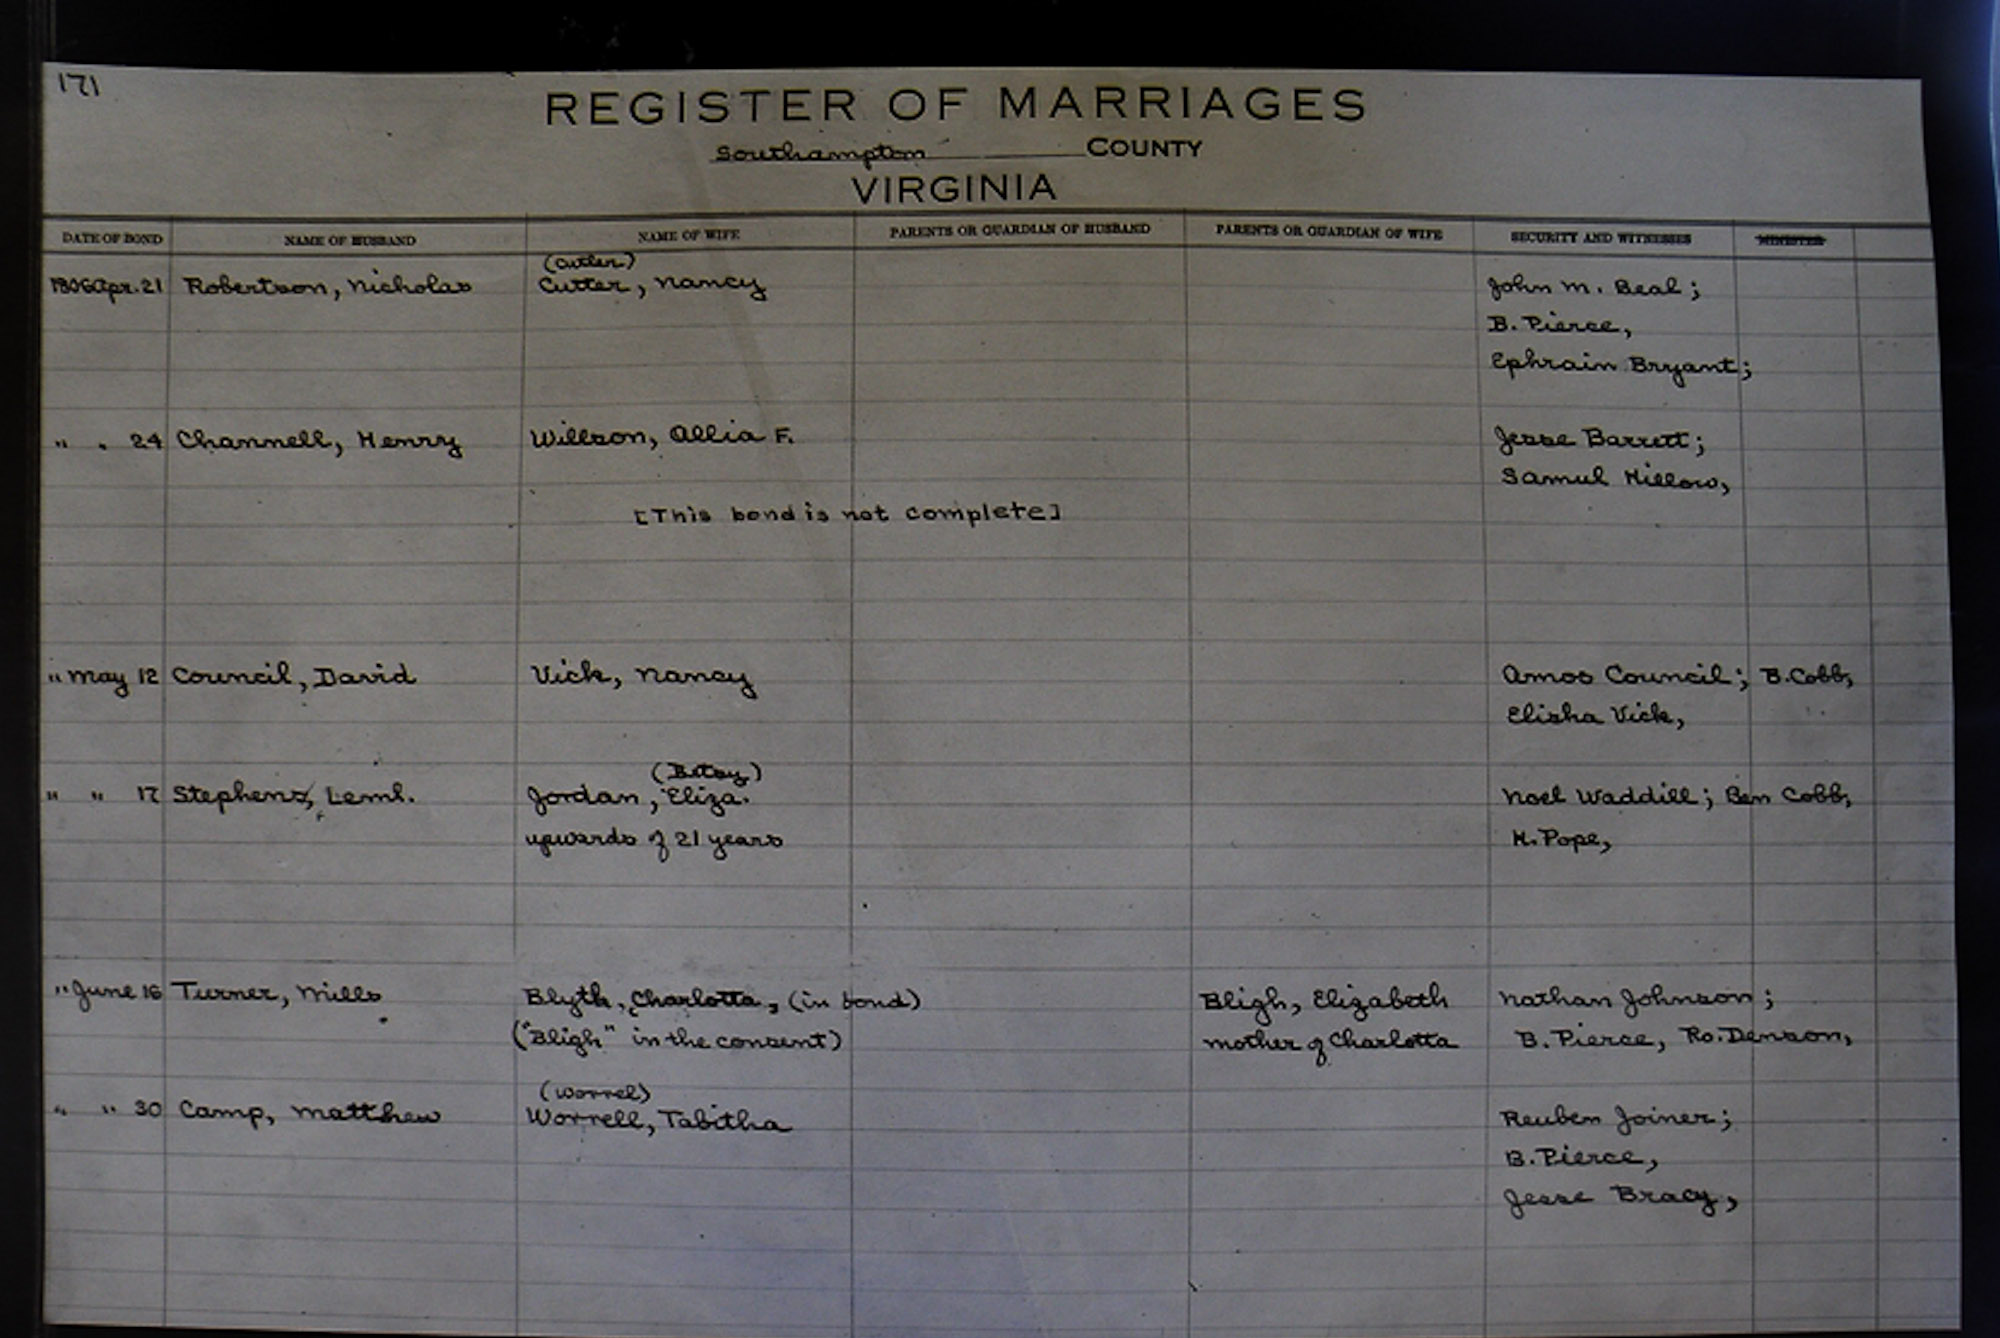 171
REGISTER OF MARRIAGES
Southampton COUNTY
VIRGINIA
DATE OF BOND NAME OF HUSBAND NAME OF WIFE PARENTS OR GUARDIAN OF HUSBAND PARENTS OR GUARDIAN OF WIFE SECURITY AND WITNESSES MINISTER
(Cutler)
1806 Apr. 21 Robertson, Nicholas Cutter, Nancy John M. Beal;
B. Pierce,
Ephrain Bryant;
" " 24 Channell, Henry Willson, Allia F. Jesse Barrett;
Samul Hillow,
[This bond is not complete]
" May 12 Council, David Vick, Nancy Amos Council; B. Cobb,
Elisha Vick,
(Betsy)
" " 17 Stephens, Leml. Jordan, Eliza. Noel Waddill; Ben Cobb,
upwards of 21 years H. Pope,
" June 16 Turner, Mills Blyth, Charlotta, (in bond) Bligh, Elizabeth Nathan Johnson;
("Bligh" in the consent) mother of Charlotta B. Pierce, Ro. Denson,
(Worrel)
" " 30 Camp, Matthew Worrell, Tabitha Reuben Joiner;
B. Pierce,
Jesse Bracy,